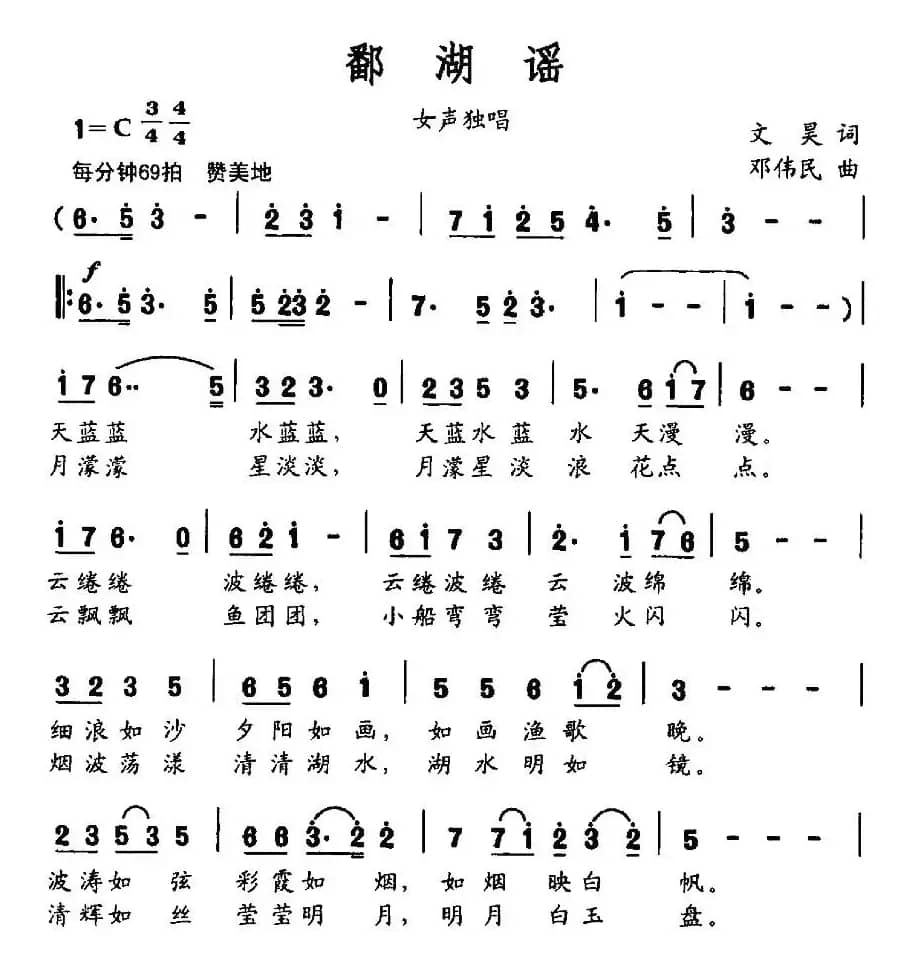 鄱湖谣
1=C 3/4 4/4
女声独唱
文昊词
每分钟69拍 赞美地
邓伟民曲
(6· 5 3 - | 2 3 1 - | 7 1 2 5 4· 5 | 3 - - |
f
‖: 6· 5 3· 5 | 5 2 3 2 - | 7· 5 2 3· | 1 - - | 1 - - ) |
1 7 6·· 5 | 3 2 3· 0 | 2 3 5 3 | 5· 6 1 7 | 6 - - |
天蓝蓝 水蓝蓝, 天蓝水蓝水天漫漫。
月濛濛 星淡淡, 月濛星淡浪花点点。
1 7 6· 0 | 6 2 1 - | 6 1 7 3 | 2· 1 7 6 | 5 - - |
云绻绻 波绻绻, 云绻波绻云波绵绵。
云飘飘 鱼团团, 小船弯弯莹火闪闪。
3 2 3 5 | 6 5 6 1 | 5 5 6 1 2 | 3 - - - |
细浪如沙 夕阳如画, 如画渔歌晚。
烟波荡漾 清清湖水, 湖水明如镜。
2 3 5 3 5 | 6 6 3· 2 2 | 7 7 1 2 3 2 | 5 - - - |
波涛如弦 彩霞如烟, 如烟映白帆。
清辉如丝 莹莹明月, 明月白玉盘。